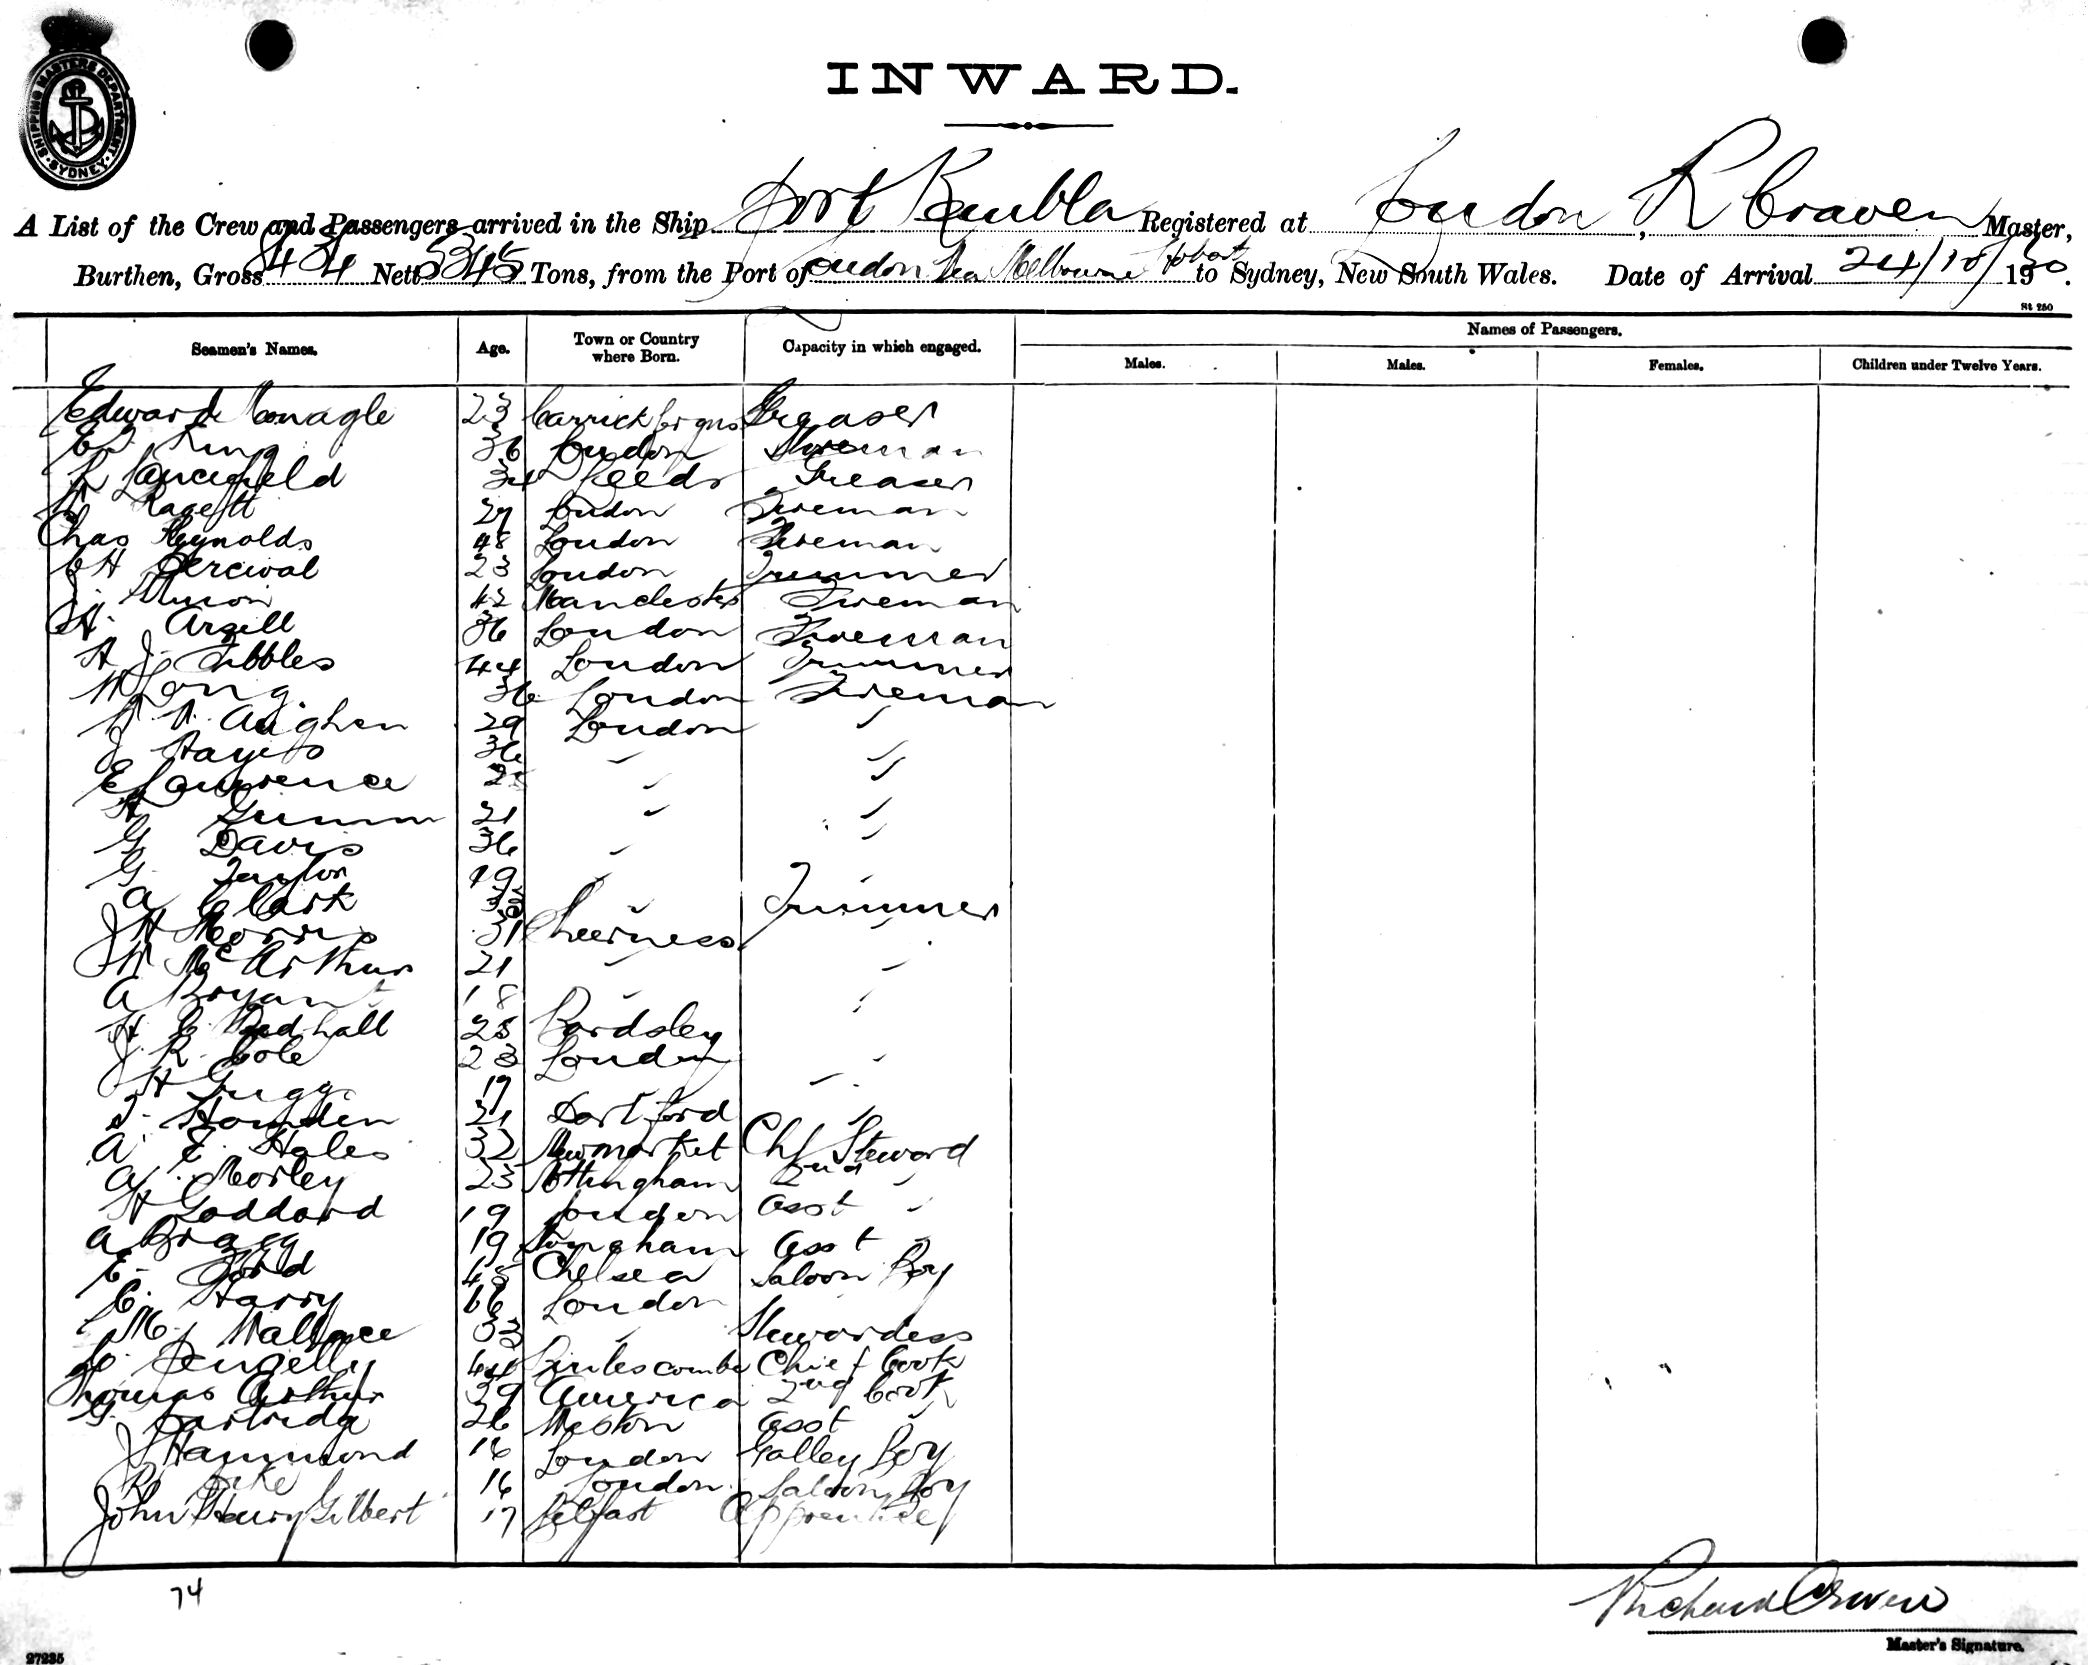 SHIPPING MASTERS DEPARTMENT SYDNEY
INWARD.
A List of the Crew and Passengers arrived in the Ship Port Kembla Registered at London, R Craven Master,
Burthen, Gross Nett 5345 Tons, from the Port of London Via Melbourne Hobart to Sydney, New South Wales. Date of Arrival 24/10/1930.
St 250
Seamen's Names. Age. Town or Country where Born. Capacity in which engaged. Names of Passengers.
Males. Males. Females. Children under Twelve Years.
Edward 23 Carrickfergus Greaser
King 36 London
34 Leeds Greaser
27 London Fireman
Chas Reynolds 48 London Fireman
C H Percival 23 London Trimmer
42 Manchester Fireman
Argill 36 London Fireman
A J Tibbles 44 London Trimmer
W Long. 36 London Fireman
29 London "
J Hayes 36 " "
E Lawrence " "
Gunn 21 " "
G Davis 36 " "
G. Taylor 19 "
A Clark 33 " Trimmer
J H Morris 31 Sheerness "
W McArthur 21 " "
A Bryant 18 " "
H C 25 Bardsley
J R. Cole 23 London "
H 17 "
T. Howden 21 Dartford
A E Hales 32 Newmarket Chf Steward
A. Morley 23 Nottingham 2nd "
H Goddard 19 London Asst "
A Bragg 19 Asst "
E. Ford 48 Chelsea Saloon Boy
C. Harry 16 London
M. Wallace 33 " Stewardess
Pengelly 44 Chief Cook
Thomas Arthur 39 America 2nd Cook
G. Partridge 26 Weston Asst "
J Hammond 16 London Galley Boy
16 London. Saloon Boy
John Henry Gilbert 17 Belfast Apprentice
74
Richard Craven
Master's Signature.
27235